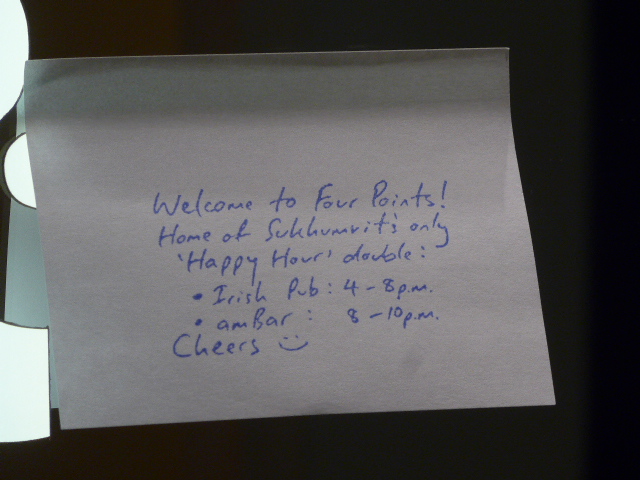 Welcome to Four Points!
Home of Sukhumvit's only
'Happy Hour' double:
• Irish Pub: 4-8p.m.
• amBar: 8-10p.m.
Cheers :)